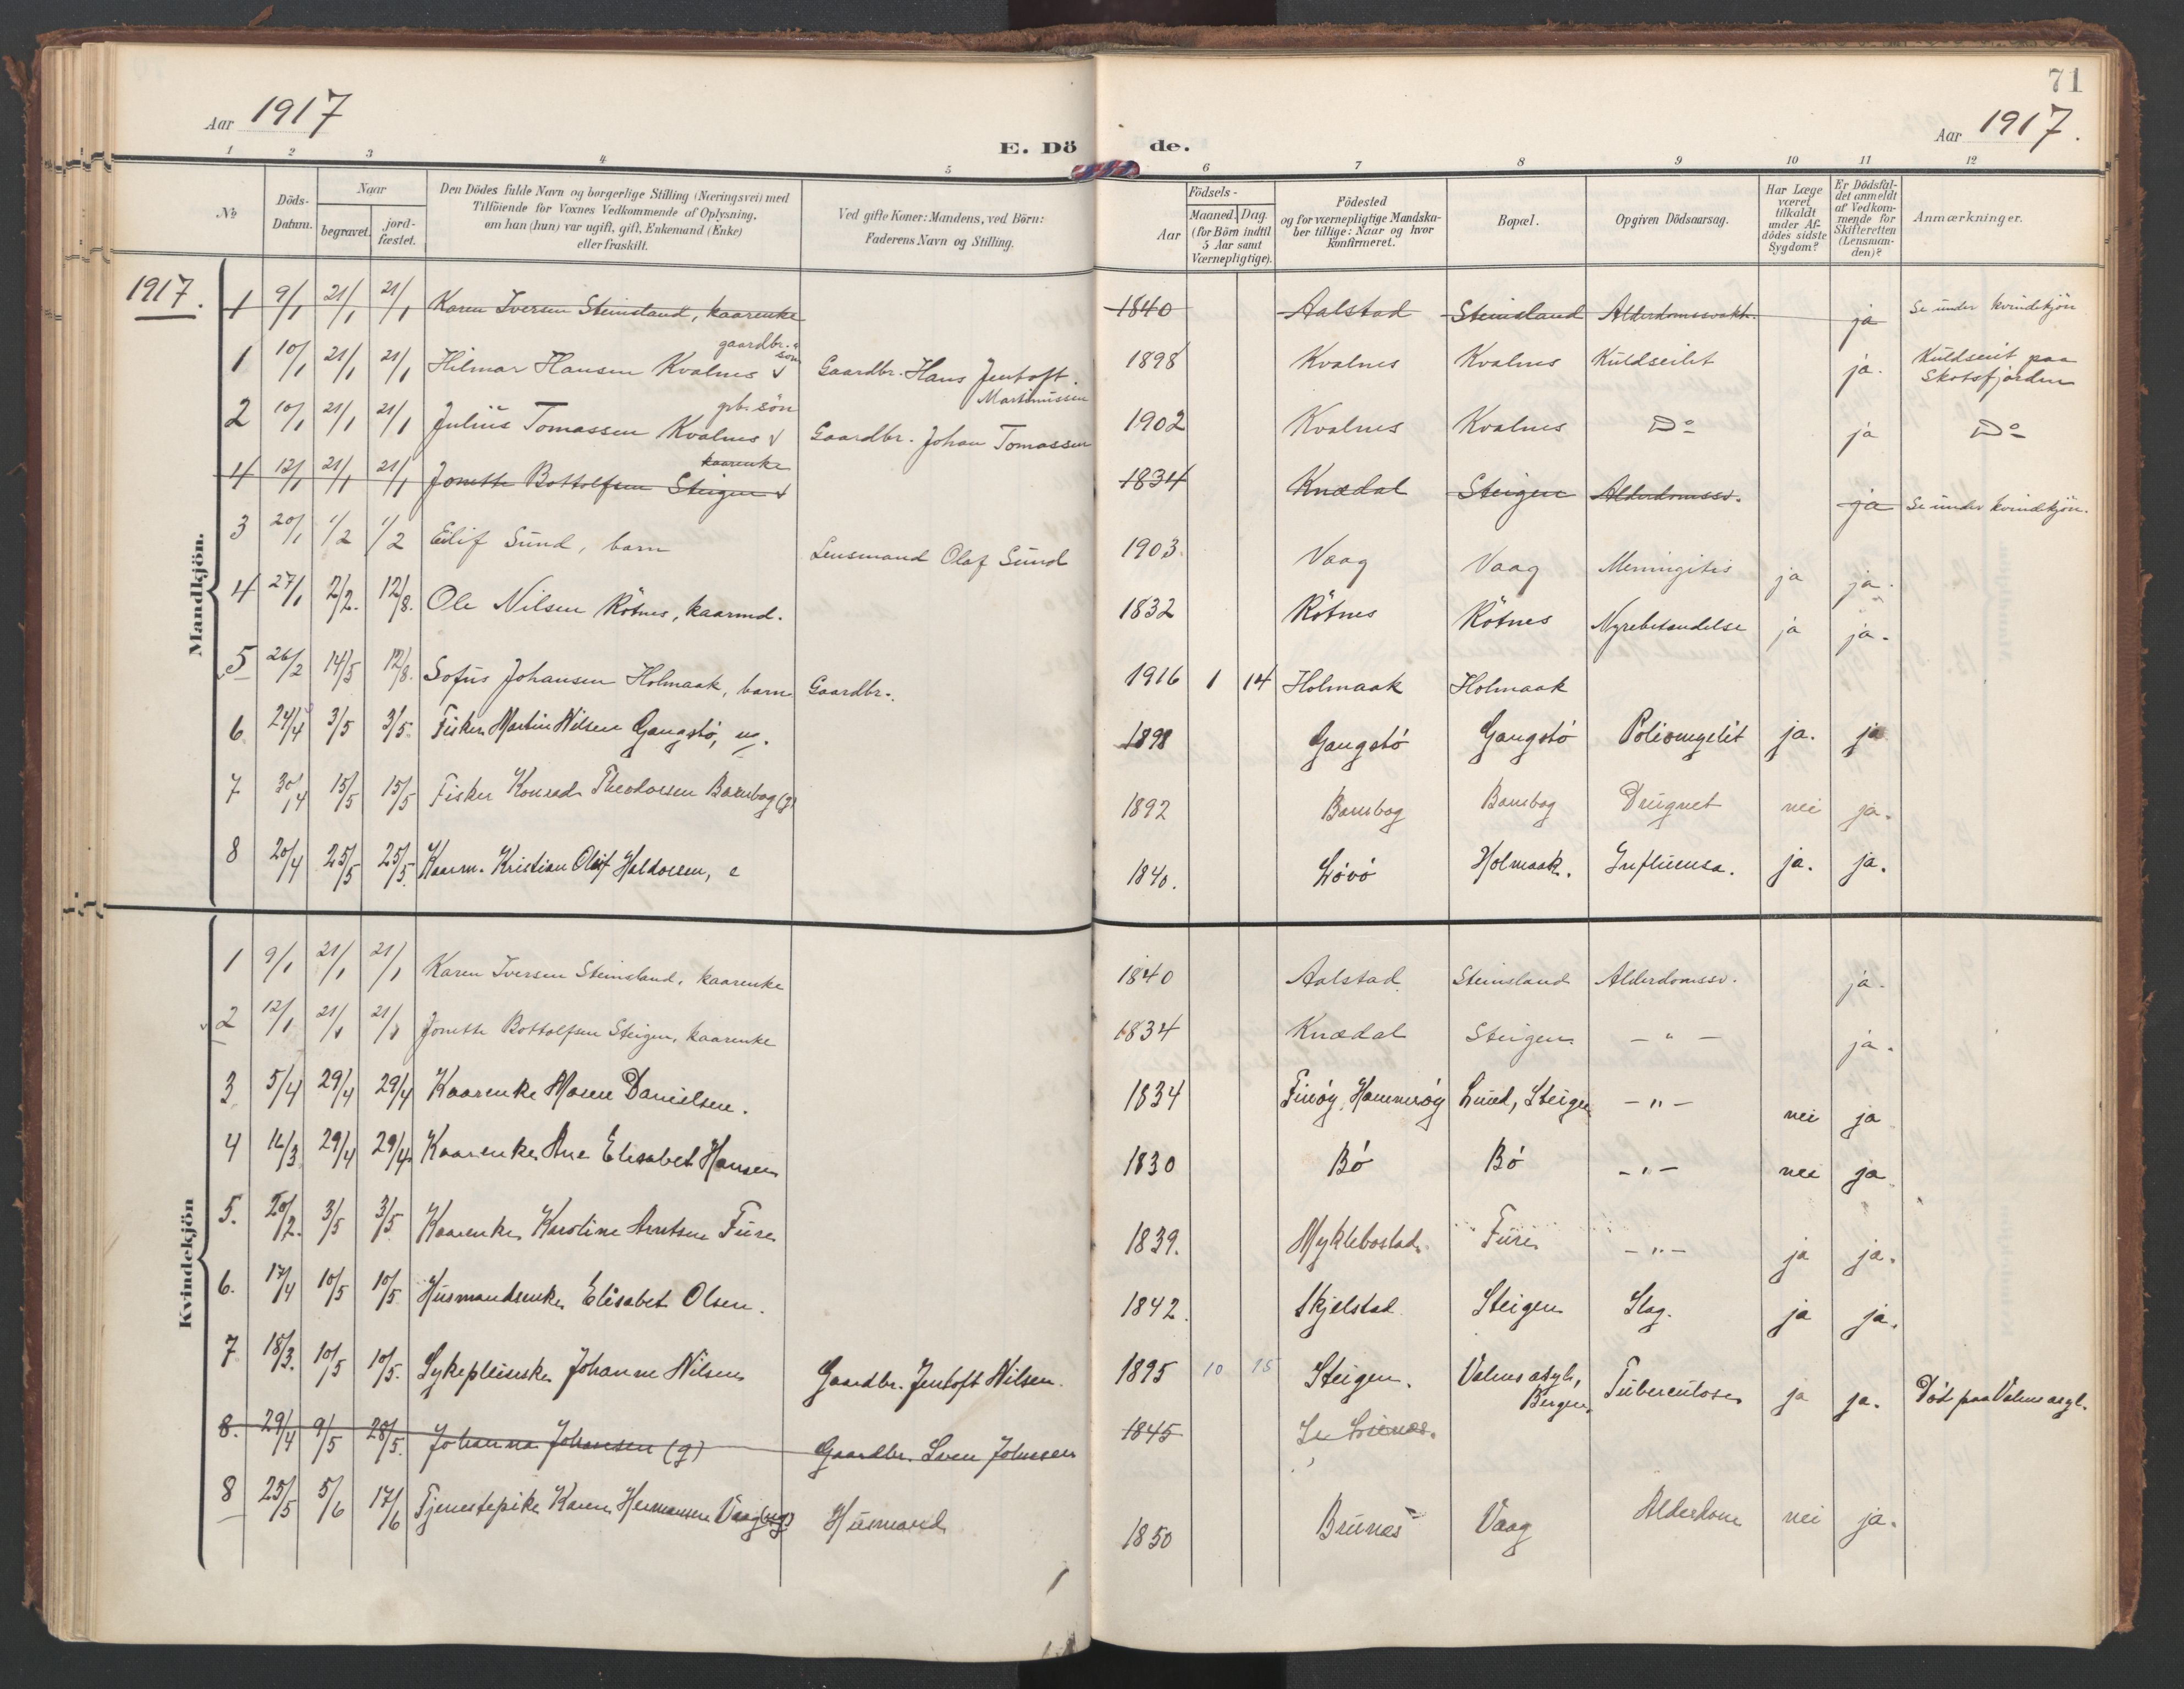 71
Aar 1917
E. Dö
de.
Aar 1917.
1 2 3 4 5 6 7 8 9 10 11 12
№
Döds-Datum.
Naar
begravet.
jord-fæstet.
Den Dödes fulde Navn og borgerlige Stilling (Næringsvei) med
Tilföiende for Voxnes Vedkommende af Oplysning,
om han (hun) var ugift, gift, Enkemand (Enke)
eller fraskilt.
Ved gifte Koner: Mandens, ved Börn:
Faderens Navn og Stilling.
Födsels-
Aar
Maaned.
Dag.
(for Börn indtil
5 Aar samt
Værnepligtige).
Födested
og for værnepligtige Mandska-
ber tillige: Naar og hvor
konfirmeret.
Bopæl.
Opgiven Dödsaarsag.
Har Læge
været
tilkaldt
under Af-
dödes sidste
Sygdom?
Er Dödsfal-
det anmeldt
af Vedkom-
mende for
Skifteretten
(Lensman-
den)?
Anmærkninger.
1917.
Mandkjön.
1 9/1 21/1 21/1 Karen Iversen Steinsland, kaarenke 1840 Aalstad Steinsland Alderdomssvakh. ja Se under kvindekjön
1 10/1 21/1 21/1 Hilmar Hansen Kvalnes gaardbr. sön Gaardbr. Hans Jentoft Martinussen 1898 Kvalnes Kvalnes Kuldseilet ja. Kuldseilt paa Skotsfjorden
2 10/1 21/1 21/1 Julius Tomassen Kvalnes gbr. sön Gaardbr. Johan Tomassen 1902 Kvalnes Kvalnes Do ja Do
4 12/1 21/1 21/1 Jonette Bottolfsen Steigen kaarenke 1834 Knædal Steigen Alderdomssv. ja Se under kvindekjön.
3 20/1 1/2 1/2 Eilif Sund, barn Lensmand Olaf Sund 1903. Vaag Vaag Meningitis ja ja.
4 27/1 2/2. 12/8. Ole Nilsen Rötnes, kaarmd. 1832 Rötnes Rötnes Nyrebetændelse ja ja.
5 26/2 14/5 12/8. Sofus Johansen Holmaak, barn Gaardbr. 1916 1 14 Holmaak Holmaak
6 24/4 3/5 3/5. Fisker Martin Nilsen Gangstö, ug. 1898 Gangstö Gangstö Poliomyelit ja. ja
7 30/4 15/5 15/5 Fisker Konrad Theodorsen Bansbog (g) 1892 Bansbog Bansbog Druknet nei ja.
8 20/4 25/5 25/5. Kaarm. Kristian Oluf Haldorsen, e 1840. Lövö Holmaak. Influensa. ja. ja.
Kvindekjön
1 9/1 21/1 21/1 Karen Iversen Steinsland, kaarenke 1840 Aalstad Steinsland Alderdomssv. ja.
2 12/1 21/1 21/1 Jonette Bottolfsen Steigen, kaarenke 1834 Knædal Steigen - " - ja.
3 5/4 29/4 29/4 Kaarenke Maren Danielsen. 1834 Finöy, Hammeröy Lund, Steigen - " - nei ja
4 16/3 29/4 29/4. Kaarenke Ane Elisabet Hansen 1830 Bö Bö - " - nei ja
5. 20/2. 3/5 3/5 Kaarenke Karoline Arntsen Füre 1839. Myklebostad Füre - " - ja ja.
6. 17/4 10/5 10/5 Husmandsenke Elisabet Olsen. 1842. Skjelstad Steigen Slag. ja ja.
7 18/3. 10/5 10/5. Sykepleierske Johanne Nilsen Gaardbr. Jentoft Nilsen. 1895 10 15 Steigen. Valens asyl, Bergen, Tuberculose ja ja. Död paa Valens asyl.
8. 29/4 9/5 28/5. Johanna Johansen (g) Gaardbr. Sven Johnsen 1845
8 25/5 5/6 17/6 Tjenestepike Karen Hermansen Vaag (ug) Husmand 1850 Brunes Vaag Alderdom nei ja.